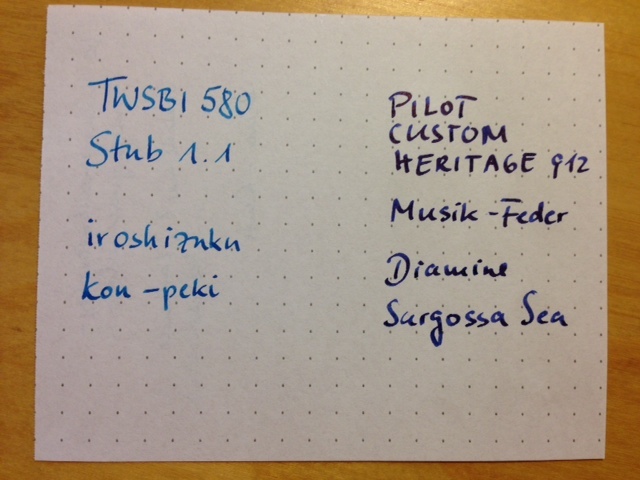 TWSBI 580
Stub 1.1
iroshizuku
kon-peki
PILOT
CUSTOM
HERITAGE 912
Musik-Feder
Diamine
Sargossa Sea